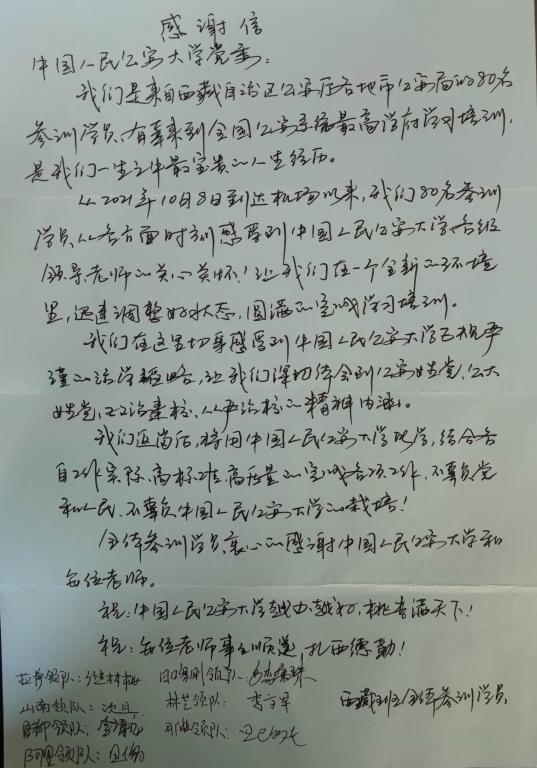 感谢信
中国人民公安大学党委：
我们是来自西藏自治区公安厅各地市公安局的80名
参训学员、有幸来到全国公安系统最高学府学习培训，
是我们一生之中最宝贵的人生经历。
从2021年10月8日到达机场以来，我们80名参训
学员，从各方面时刻感受到中国人民公安大学各级
领导、老师的关心关怀！让我们在一个全新的环境
里，迅速调整好状态，圆满的完成学习培训。
我们在这里切身感受到中国人民公安大学正规严
谨的治学，让我们深切体会到公安姓党、公大
姓党，政治建校、从严治校的精神内涵。
我们返岗后，将用中国人民公安大学所学，结合各
自工作实际，高标准、高质量的完成各项工作，不辜负党
和人民、不辜负中国人民公安大学的栽培！
全体参训学员衷心的感谢中国人民公安大学和
每位老师。
祝：中国人民公安大学越办越好，桃李满天下！
祝：每位老师事事顺意，扎西德勒！
拉萨领队： 日喀则领队：
山南领队：次旦 林芝领队：李
昌都领队： 领队：
阿里领队：
西藏班全体参训学员